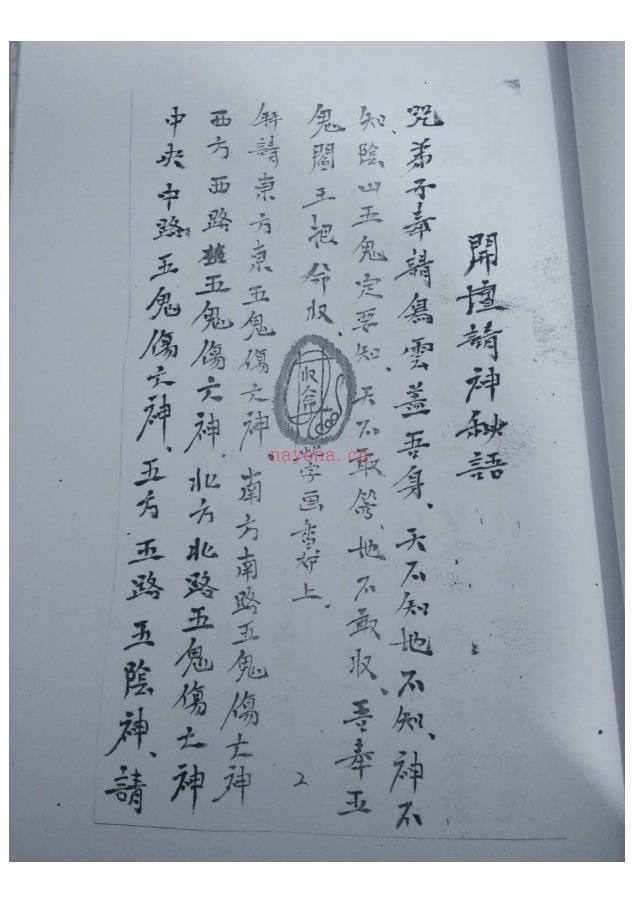 開壇請神秘語
咒弟子奉請烏雲蓋吾身、天不知地不知、神不
知、陰山五鬼定要知、天不敢答、地不敢收、吾奉五
鬼閻王把命收、
收命
字画香炉上、
拜請東方東五鬼傷亡神、南方南路五鬼傷亡神
西方西路五鬼傷亡神、北方北路五鬼傷亡神
中央中路五鬼傷亡神、五方五路五陰神、請
2
nayona.cn